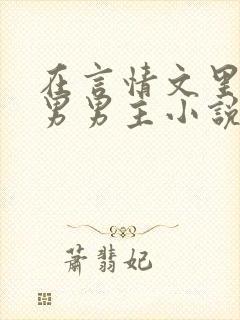 在言情文里
男男主小說
萧翡妃